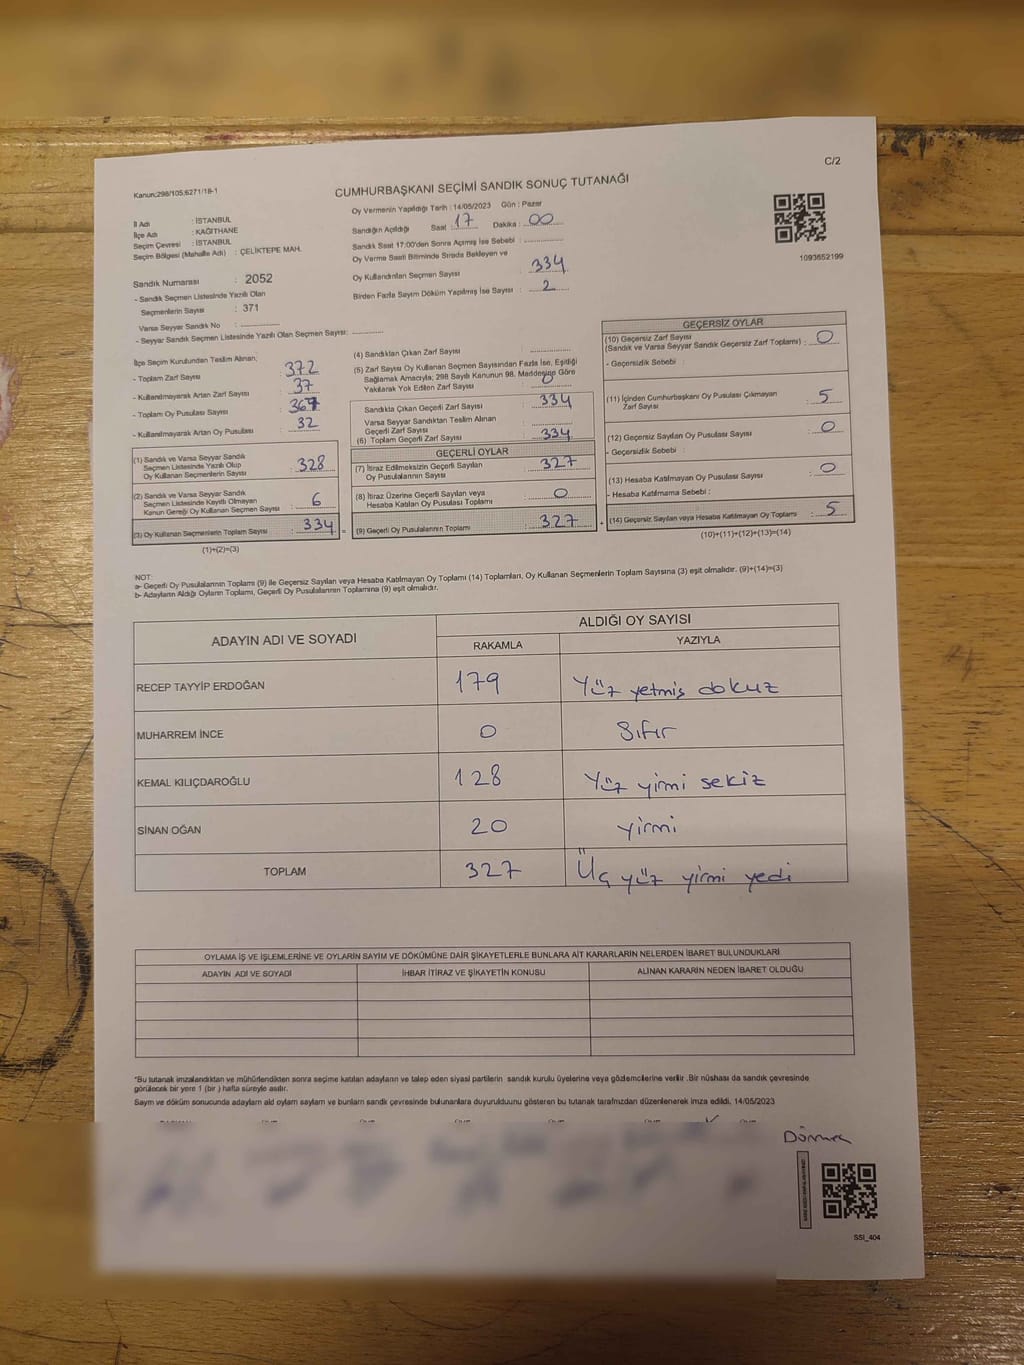 C/2
Kanun:298/105;6271/18-1
CUMHURBAŞKANI SEÇİMİ SANDIK SONUÇ TUTANAĞI
İl Adı : İSTANBUL
İlçe Adı : KAĞITHANE
Seçim Çevresi : İSTANBUL
Seçim Bölgesi (Mahalle Adı) : ÇELİKTEPE MAH.
Sandık Numarası : 2052
- Sandık Seçmen Listesinde Yazılı Olan
Seçmenlerin Sayısı : 371
Varsa Seyyar Sandık No :
- Seyyar Sandık Seçmen Listesinde Yazılı Olan Seçmen Sayısı:
Oy Vermenin Yapıldığı Tarih : 14/05/2023 Gün : Pazar
Sandığın Açıldığı Saat : 17 Dakika : 00
Sandık Saat 17:00'den Sonra Açılmış İse Sebebi :
Oy Verme Saati Bitiminde Sırada Bekleyen ve
Oy Kullandırılan Seçmen Sayısı : 334
Birden Fazla Sayım Döküm Yapılmış İse Sayısı : 2
1093652199
İlçe Seçim Kurulundan Teslim Alınan;
- Toplam Zarf Sayısı : 372
- Kullanılmayarak Artan Zarf Sayısı : 37
- Toplam Oy Pusulası Sayısı :
- Kullanılmayarak Artan Oy Pusulası : 32
(1) Sandık ve Varsa Seyyar Sandık
Seçmen Listesinde Yazılı Olup
Oy Kullanan Seçmenlerin Sayısı : 328
(2) Sandık ve Varsa Seyyar Sandık
Seçmen Listesinde Kayıtlı Olmayan
Kanun Gereği Oy Kullanan Seçmen Sayısı : 6
(3) Oy Kullanan Seçmenlerin Toplam Sayısı : 334 =
(1)+(2)=(3)
(4) Sandıktan Çıkan Zarf Sayısı :
(5) Zarf Sayısı Oy Kullanan Seçmen Sayısından Fazla İse, Eşitliği
Sağlamak Amacıyla; 298 Sayılı Kanunun 98. Maddesine Göre
Yakılarak Yok Edilen Zarf Sayısı : 0
Sandıkta Çıkan Geçerli Zarf Sayısı : 334
Varsa Seyyar Sandıktan Teslim Alınan
Geçerli Zarf Sayısı :
(6) Toplam Geçerli Zarf Sayısı : 334
GEÇERLİ OYLAR
(7) İtiraz Edilmeksizin Geçerli Sayılan
Oy Pusulalarının Sayısı : 327
(8) İtiraz Üzerine Geçerli Sayılan veya
Hesaba Katılan Oy Pusulası Toplamı : 0
(9) Geçerli Oy Pusulalarının Toplamı : 327 +
GEÇERSİZ OYLAR
(10) Geçersiz Zarf Sayısı
(Sandık ve Varsa Seyyar Sandık Geçersiz Zarf Toplamı) : 0
- Geçersizlik Sebebi :
(11) İçinden Cumhurbaşkanı Oy Pusulası Çıkmayan
Zarf Sayısı : 5
(12) Geçersiz Sayılan Oy Pusulası Sayısı : 0
- Geçersizlik Sebebi :
(13) Hesaba Katılmayan Oy Pusulası Sayısı : 0
- Hesaba Katılmama Sebebi :
(14) Geçersiz Sayılan veya Hesaba Katılmayan Oy Toplamı : 5
(10)+(11)+(12)+(13)=(14)
NOT:
a- Geçerli Oy Pusulalarının Toplamı (9) ile Geçersiz Sayılan veya Hesaba Katılmayan Oy Toplamı (14) Toplamları, Oy Kullanan Seçmenlerin Toplam Sayısına (3) eşit olmalıdır. (9)+(14)=(3)
b- Adayların Aldığı Oyların Toplamı, Geçerli Oy Pusulalarının Toplamına (9) eşit olmalıdır.
ADAYIN ADI VE SOYADI
ALDIĞI OY SAYISI
RAKAMLA YAZIYLA
RECEP TAYYİP ERDOĞAN 179 Yüz yetmiş dokuz
MUHARREM İNCE 0 Sıfır
KEMAL KILIÇDAROĞLU 128 Yüz yirmi sekiz
SİNAN OĞAN 20 yirmi
TOPLAM 327 Üç yüz yirmi yedi
OYLAMA İŞ VE İŞLEMLERİNE VE OYLARIN SAYIM VE DÖKÜMÜNE DAİR ŞİKAYETLERLE BUNLARA AİT KARARLARIN NELERDEN İBARET BULUNDUKLARI
ADAYIN ADI VE SOYADI İHBAR İTİRAZ VE ŞİKAYETİN KONUSU ALINAN KARARIN NEDEN İBARET OLDUĞU
*Bu tutanak imzalandıktan ve mühürlendikten sonra seçime katılan adayların ve talep eden siyasi partilerin sandık kurulu üyelerine veya gözlemcilerine verilir .Bir nüshası da sandık çevresinde
görülecek bir yere 1 (bir ) hafta süreyle asılır.
Sayım ve döküm sonucunda adayların ald oyların sayların ve bunların sandık çevresinde bulunanlara duyurulduunu gösteren bu tutanak tarafmızdan düzenlenerek imza edildi. 14/05/2023
SSI_404